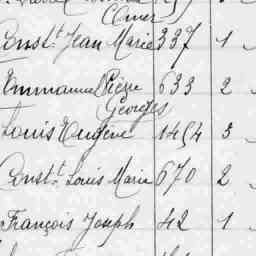 (Omer)
Const. Jean Marie 337 1
Emmanuel Pierre 633 2
Georges
Louis Eugène 1454 3
Const.t Louis Marie 670 2
François Joseph 42 1